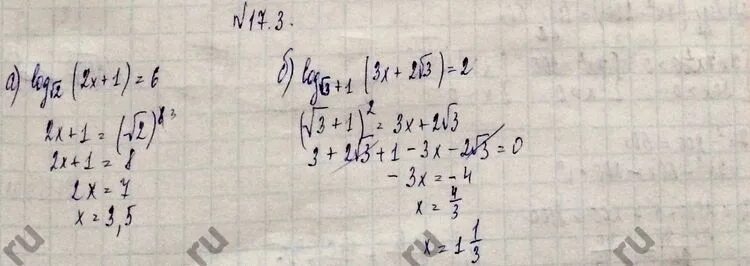 №17.3.
а) log_√2 (2x+1) = 6
2x+1 = (√2)^6
2x+1 = 8
2x = 7
x = 3,5
б) log_√3+1 (3x+2√3) = 2
(√3+1)² = 3x+2√3
3+2√3+1-3x-2√3=0
-3x = -4
x = 4/3
x = 1 1/3
ru
ru
ru
ru